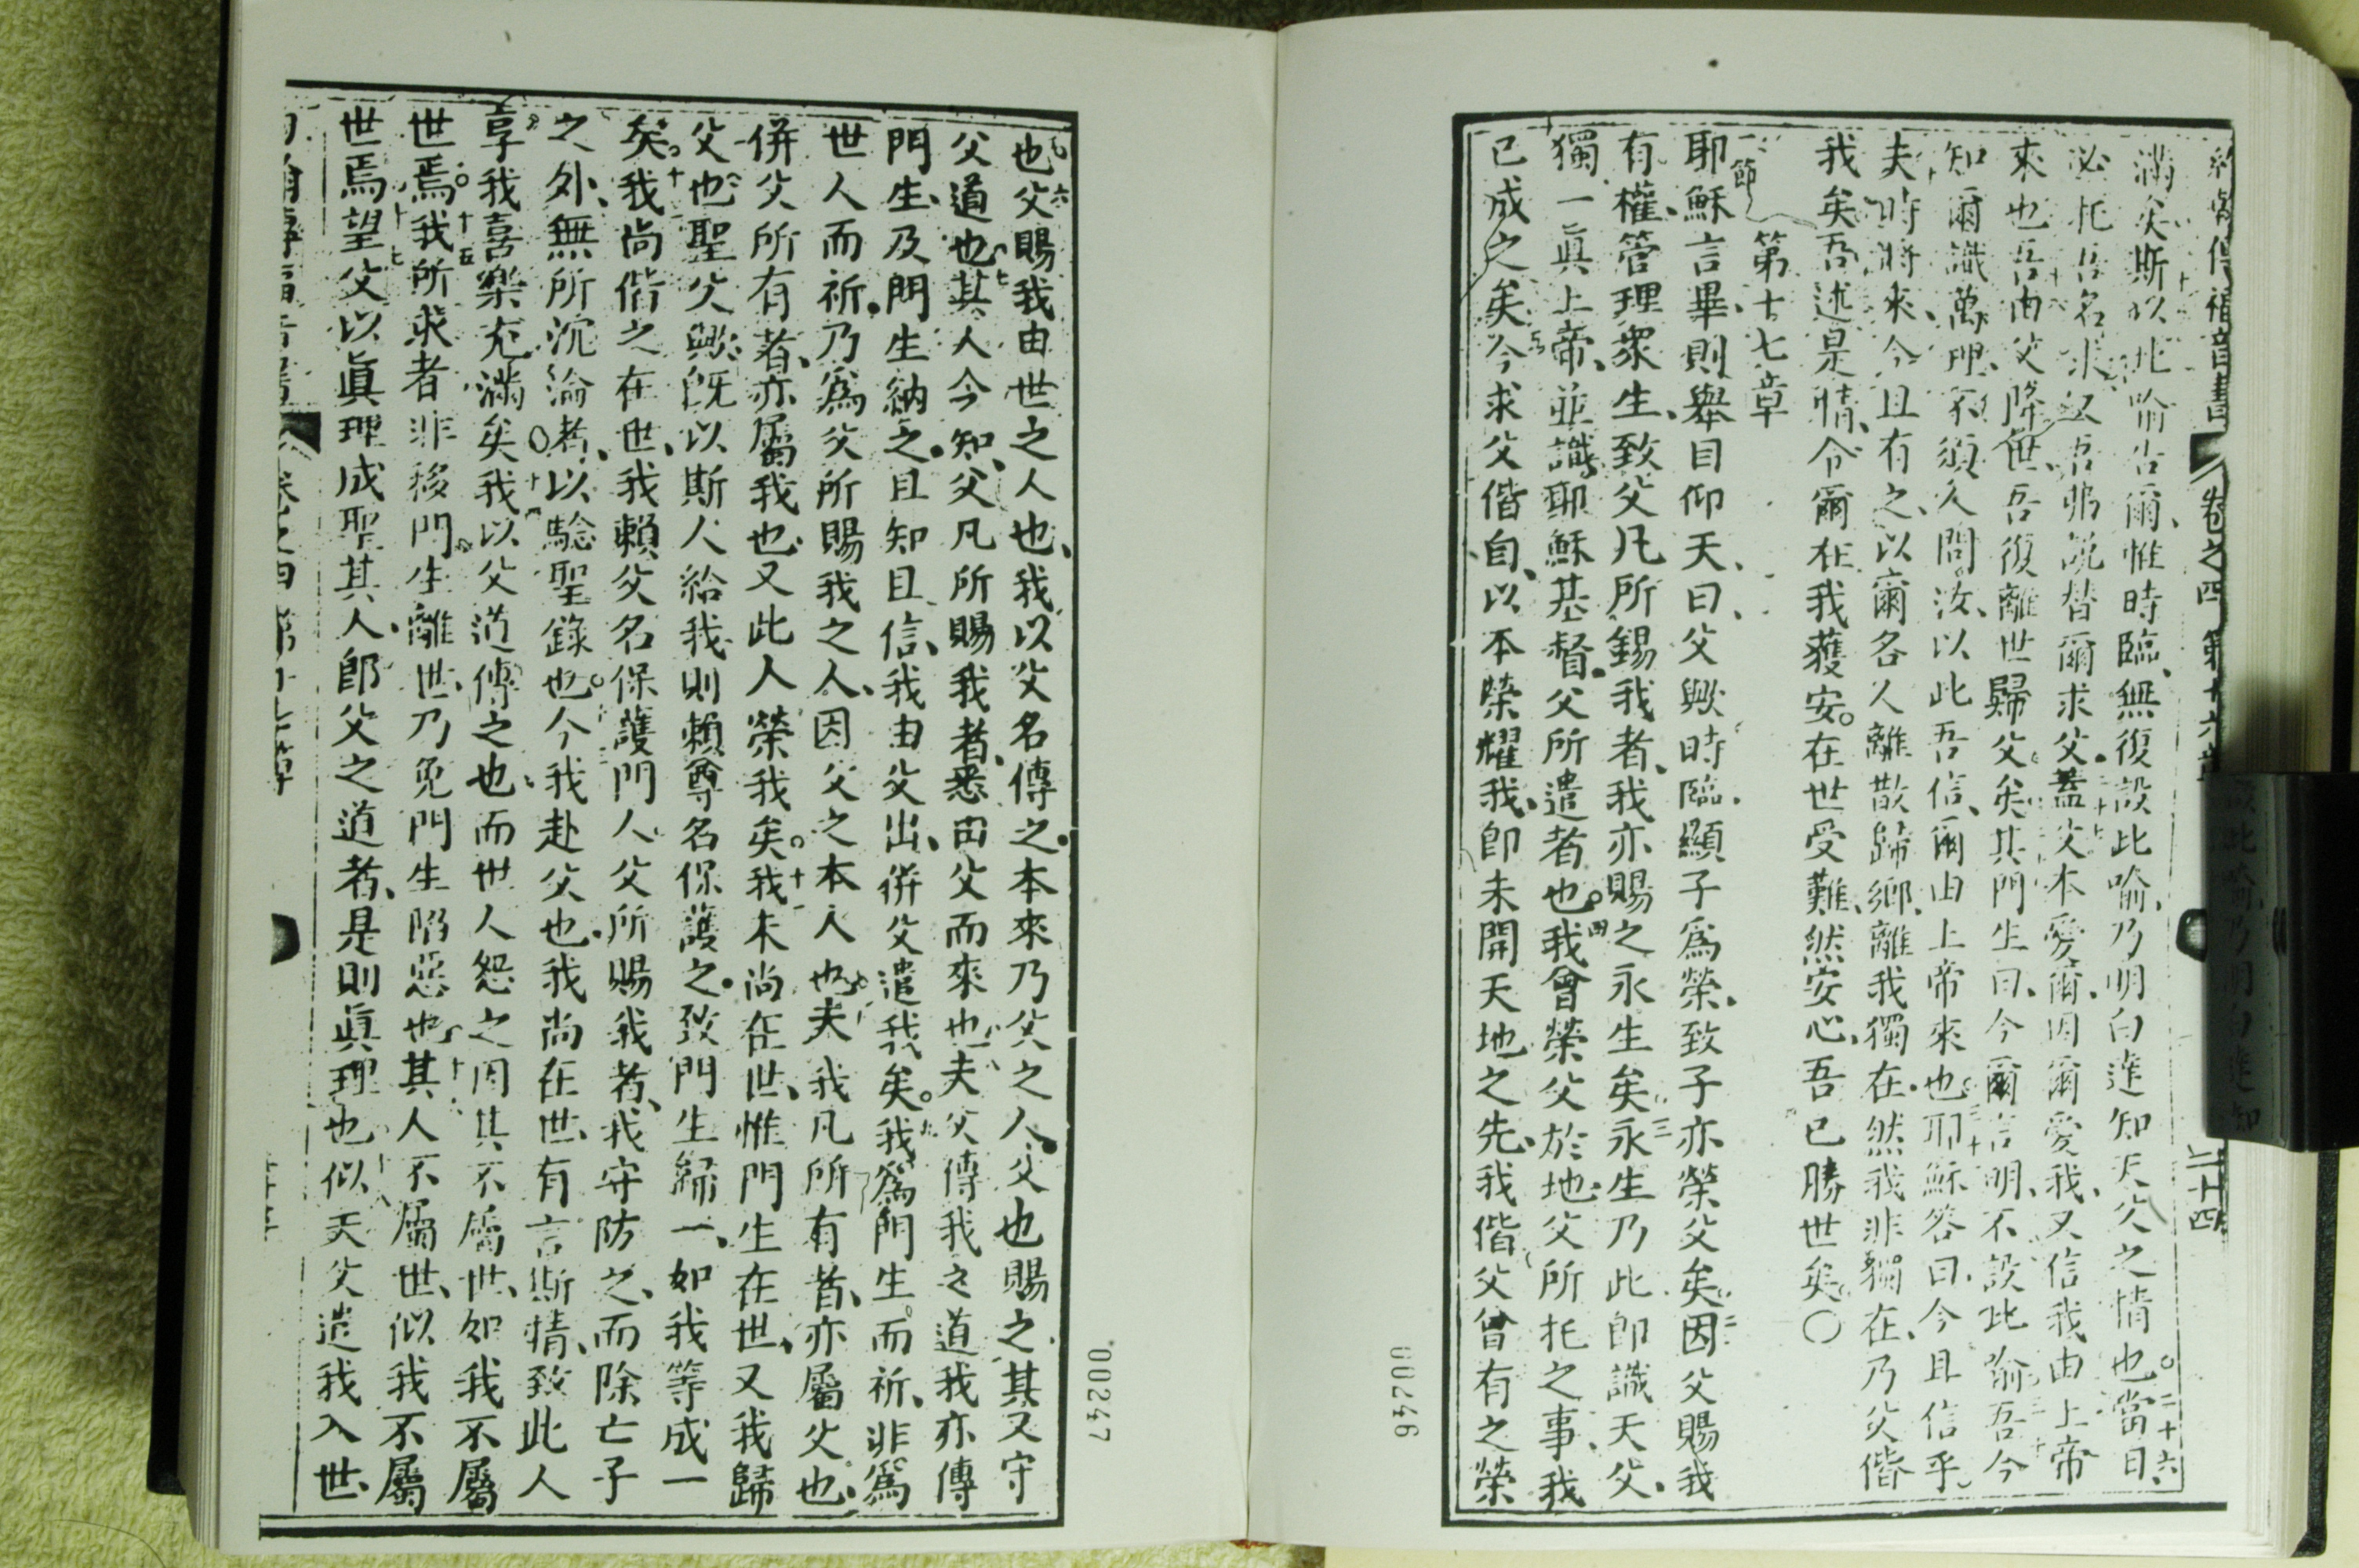 約翰傳福音書 卷之四 第十六章 二十四
滿矣斯以此喻告爾、惟時臨、無復設此喻、乃明白達知天父之情也。二十六當日、
必托吾名求、吾弗說替爾求父。二十七蓋父本愛爾、因爾愛我、又信我由上帝
來也吾由父降世、吾復離世歸父矣其門生曰、今爾言明、不設此喻吾今
知爾識萬理、不須人問汝、以此吾信、爾由上帝來也三十耶穌答曰、今且信乎、
夫時將來、今且有之、以爾各人離散歸鄉、離我獨在、然我非獨在、乃父偕
我矣吾述是情、令爾在我獲安。在世受難、然安心、吾已勝世矣〇
第十七章
一節耶穌言畢、則舉目仰天、曰、父歟時臨、顯子為榮、致子亦榮父矣二因父賜我
有權、管理眾生、致父凡所錫我者、我亦賜之永生矣三永生乃此即識天父、
獨一真上帝、並識耶穌基督。父所遣者也。四我曾榮父於地、父所托之事、我
已成之矣五今求父偕自、以本榮耀我、即未開天地之先、我偕父曾有之榮
00246
也六父賜我由世之人也、我以父名傳之。本來乃父之人。父也賜之、其又守
父道也七其人今知、父凡所賜我者、悉由父而來也八夫父傳我之道我亦傳
門生、及門生納之。且知且信、我由父出、併父遣我矣。九我為門生。而祈、非為
世人而祈。乃為父所賜我之人、因父之本人也十夫我凡所有者、亦屬父也、
併父所有者、亦屬我也又此人榮我矣。十一我未尚在世、惟門生在世、又我歸
父也聖父歟既以斯人給我、則賴尊名保護之。致門生歸一、如我等成一
矣。十二我尚偕之在世、我賴父名保護門人、父所賜我者、我守防之、而除亡子
之外、無所沉淪者、以驗聖錄也。十三今我赴父也、我尚在世、有言斯情、致此人
享我喜樂充滿矣〇十四我以父道傳之也、而世人怨之因其不屬世、如我不屬
世焉。十五我所求者非移門生離世、乃免門生陷惡也十六其人不屬世、似我不屬
世焉十七望父以真理成聖其人、即父之道者、是則真理也十八似天父遣我入世、
00247